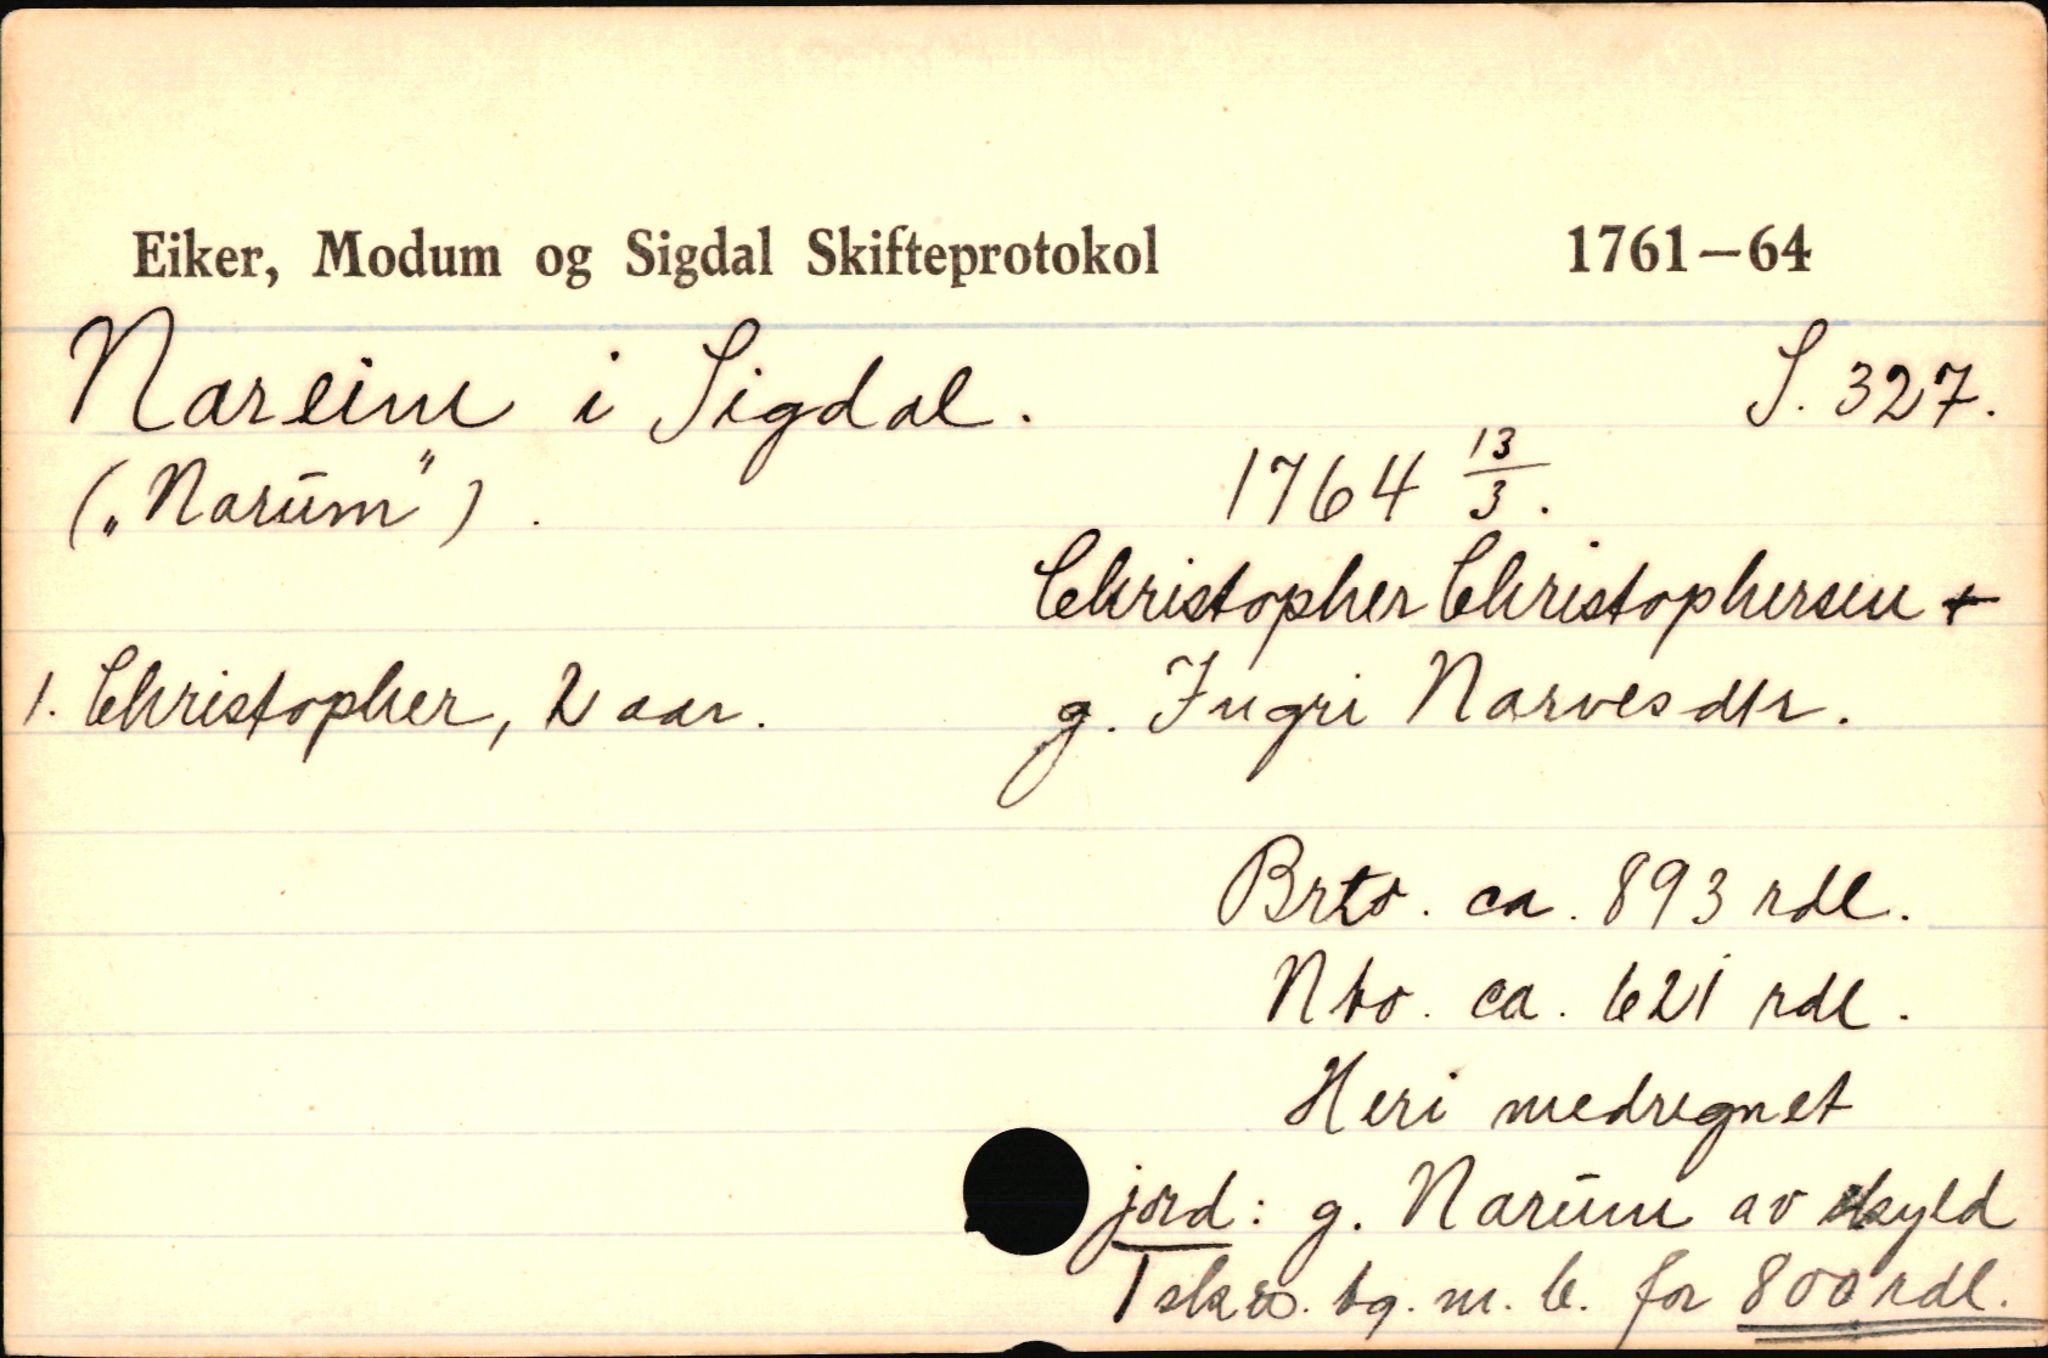 Eiker, Modum og Sigdal Skifteprotokol 1761–64
Nareim i Sigdal. S. 327.
(„Narūm”). 1764 13/3.
Christopher Christophersen +
1. Christopher, 2 aar. g. Ingri Narvesdtr.
Brto. ca. 893 rdl.
Nto. ca. 621 rdl.
Heri medregnet
jord: g. Narūm av skyld
1 skp. tg. m. b. for 800 rdl.